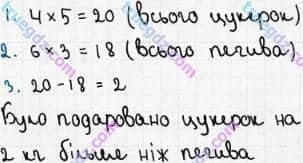 1. 4 × 5 = 20 (всього цукерок)
2. 6 × 3 = 18 (всього печива)
3. 20 - 18 = 2
Було подаровано цукерок на
2 кг більше ніж печива